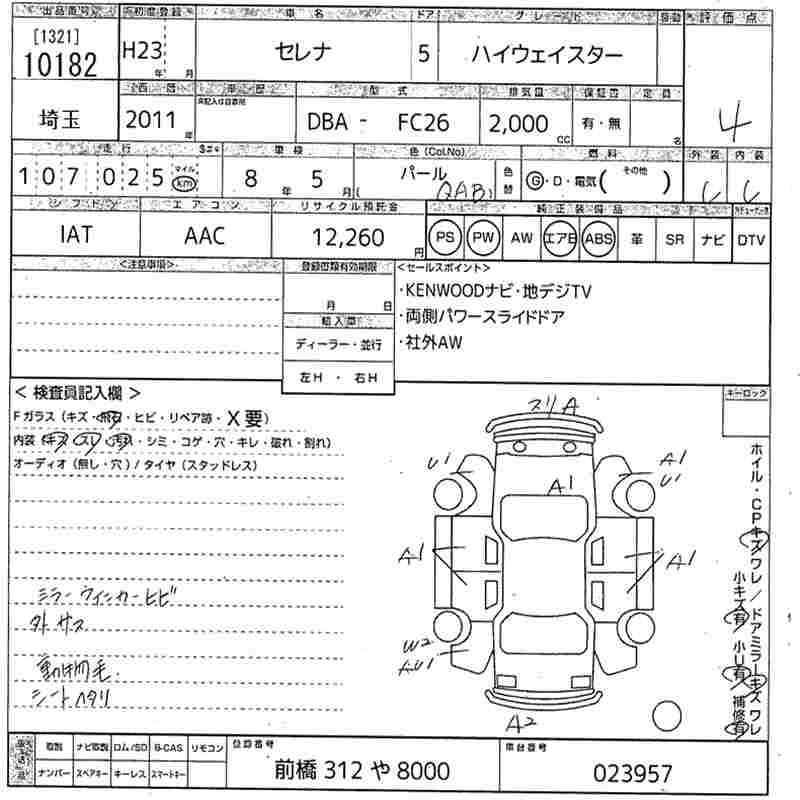 出品番号 初度登録 車名 ドア グレード 評価点
[1321]
10182 H23 年 月 セレナ 5 ハイウェイスター 4
西暦 車歴 型式 排気量 保証書 定員
埼玉 2011 年 DBA - FC26 2,000 CC 有・無 名
走行 車検 色(Col.No) 燃料 外装 内装
107025 マイル km 8 年 5 月 パール (QAB) 色替 G・D・電気( その他 ) C C
シフト エアコン リサイクル預託金 純正装備品
IAT AAC 12,260 円 PS PW AW エアB ABS 革 SR ナビ DTV
<注意事項> 登録書類有効期限 <セールスポイント>
月 日
・KENWOODナビ・地デジTV
・両側パワースライドドア
・社外AW
輸入車
ディーラー・並行
左H ・ 右H
< 検査員記入欄 > キーロック
Fガラス(キズ・飛石・ヒビ・リペア跡・X要)
内装(キズ・スレ・汚れ・シミ・コゲ・穴・キレ・破れ・割れ)
オーディオ(無し・穴)/タイヤ(スタッドレス)
スリA
U1 A1 A1
U1
A1 A1
W2
AU1
A2
ミラーウィンカーヒビ
外サス
動物毛.
シートヘタリ
ホイル・CPキズワレ/ドアミラーキズワレ
小キズ有 小U有 補修有
取説 ナビ取説 ロム/SD B-CAS リモコン 登録番号 車台番号
ナンバー スペアキー キーレス スマートキー 前橋 312 や 8000 023957